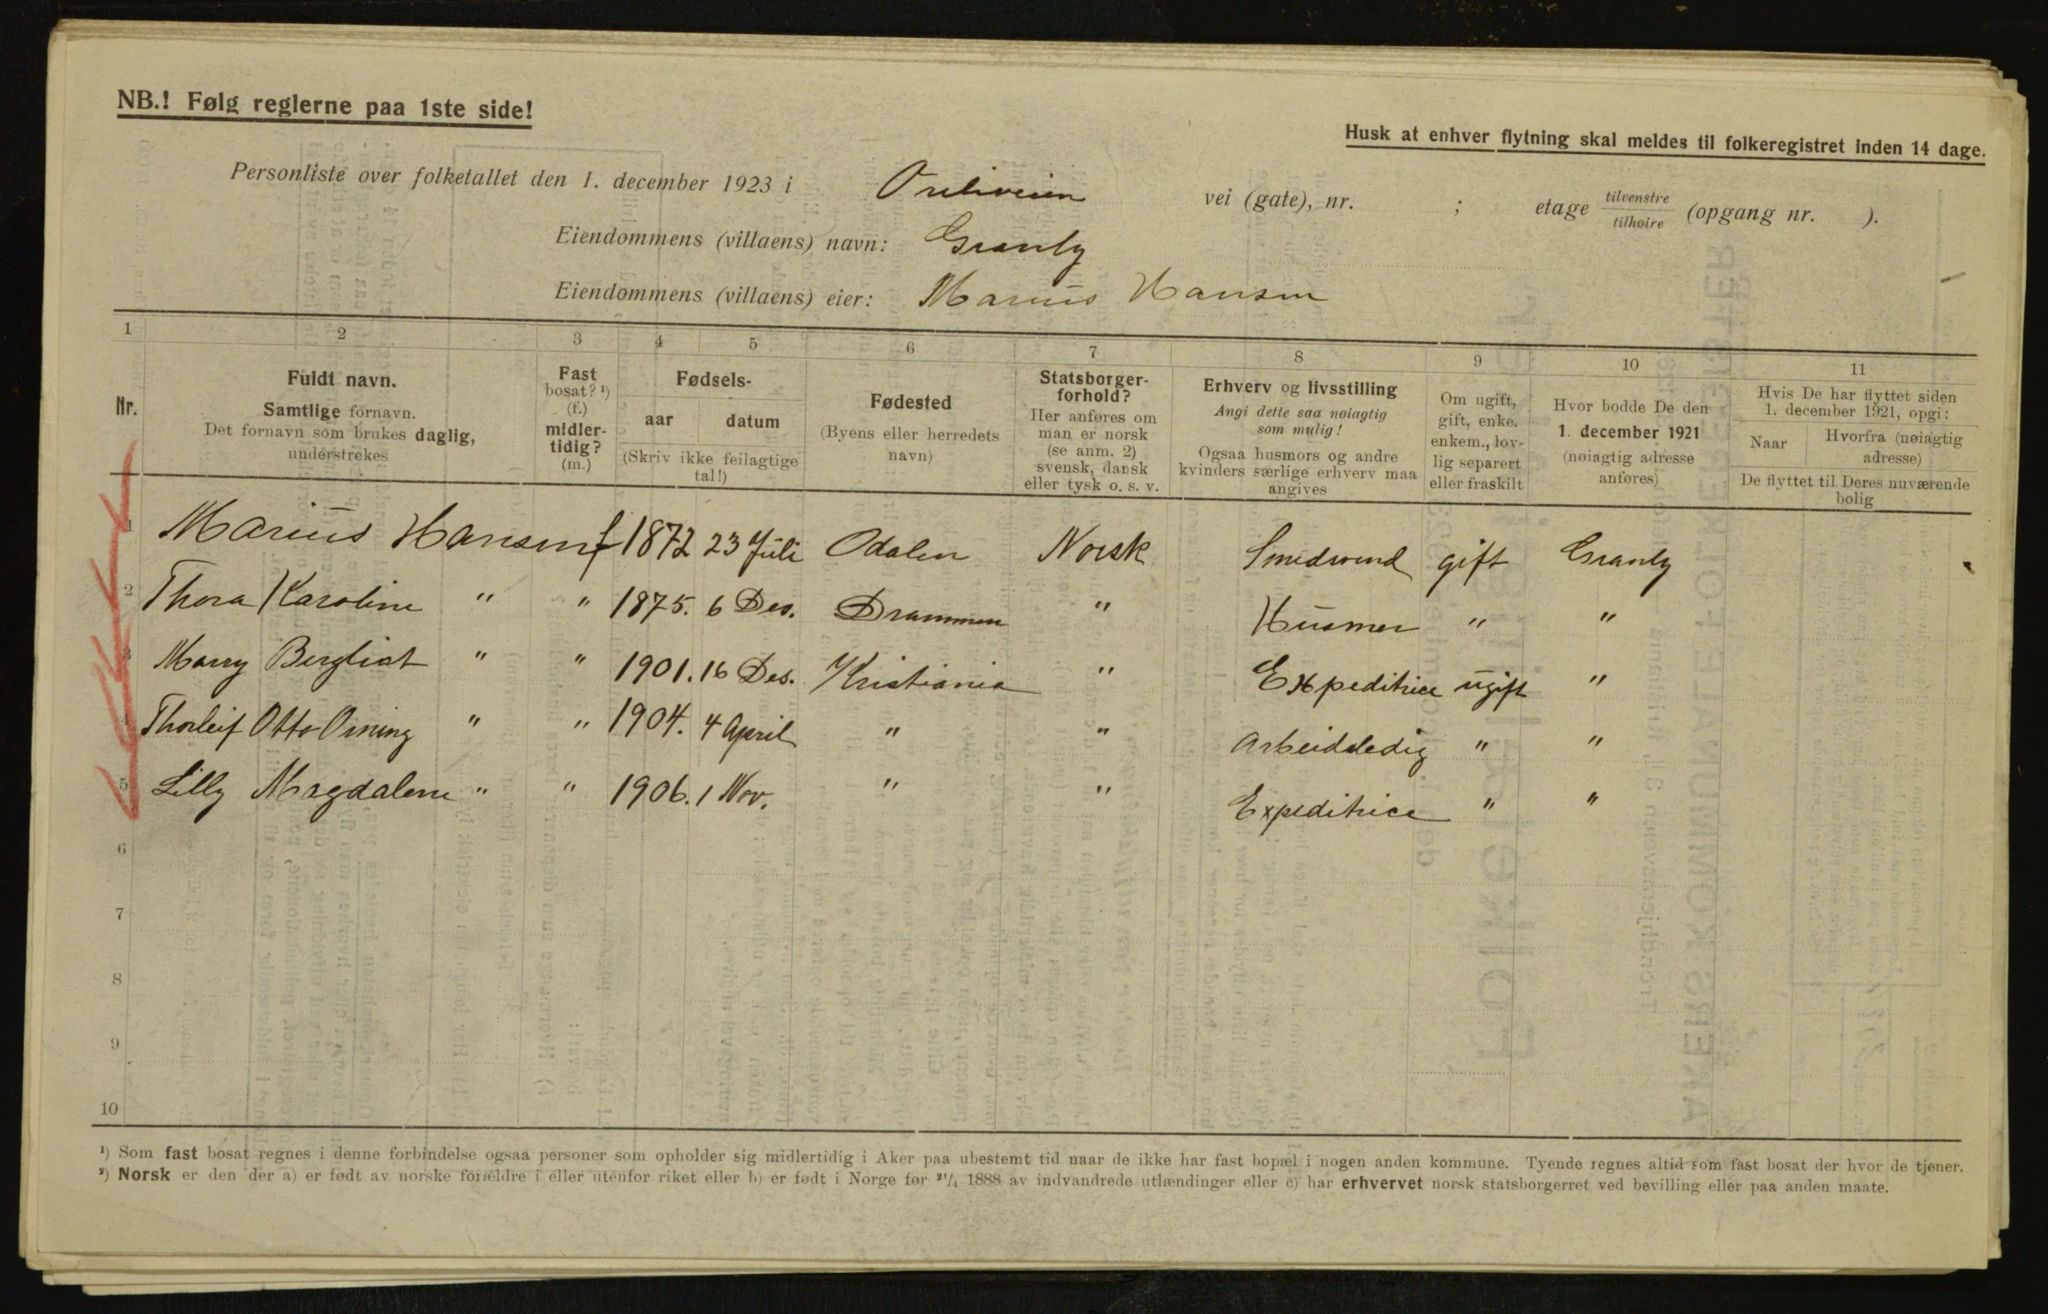 NB.! Følg reglerne paa 1ste side!
Husk at enhver flytning skal meldes til folkeregistret inden 14 dage.
Personliste over folketallet den 1. december 1923 i vei (gate), nr. ; etage tilvenstre/tilhøire (opgang nr. ).
Eiendommens (villaens) navn: Granly
Eiendommens (villaens) eier: Marius Hansen
1 2 3 4 5 6 7 8 9 10 11
Nr.
Fuldt navn.
Samtlige fornavn.
Det fornavn som brukes daglig,
understrekes
Fast
bosat? ¹)
(f.)
midler-
tidig?
(m.)
Fødsels-
aar datum
(Skriv ikke feilagtige
tal!)
Fødested
(Byens eller herredets
navn)
Statsborger-
forhold?
Her anføres om
man er norsk
(se anm. 2)
svensk, dansk
eller tysk o. s. v.
Erhverv og livsstilling
Angi dette saa nøiagtig
som mulig!
Ogsaa husmors og andre
kvinders særlige erhverv maa
angives
Om ugift,
gift, enke.
enkem., lov-
lig separert
eller fraskilt
Hvor bodde De den
1. december 1921
(nøiagtig adresse
anføres)
Hvis De har flyttet siden
1. december 1921, opgi:
Naar Hvorfra (nøiagtig
adresse)
De flyttet til Deres nuværende
bolig
1 Marius Hansen f 1872 23 Juli Odalen Norsk Smedsvend gift Granly
2 Thora Karoline " " 1875. 6 Des. Drammen " Husmer " "
3 Marry Bergliot " " 1901. 16 Des. Kristiania " Expeditrice ugift "
4 Thorleif Otto Orning " " 1904. 4 April " " Arbeidsledig " "
5 Lilly Magdalene " " 1906. 1 Nov. " " Expeditrice " "
6
7
8
9
10
¹) Som fast bosat regnes i denne forbindelse ogsaa personer som opholder sig midlertidig i Aker paa ubestemt tid naar de ikke har fast bopæl i nogen anden kommune. Tyende regnes altid som fast bosat der hvor de tjener.
²) Norsk er den der a) er født av norske forældre i eller utenfor riket eller b) er født i Norge før ²¹/₄ 1888 av indvandrede utlændinger eller c) har erhvervet norsk statsborgerret ved bevilling eller paa anden maate.